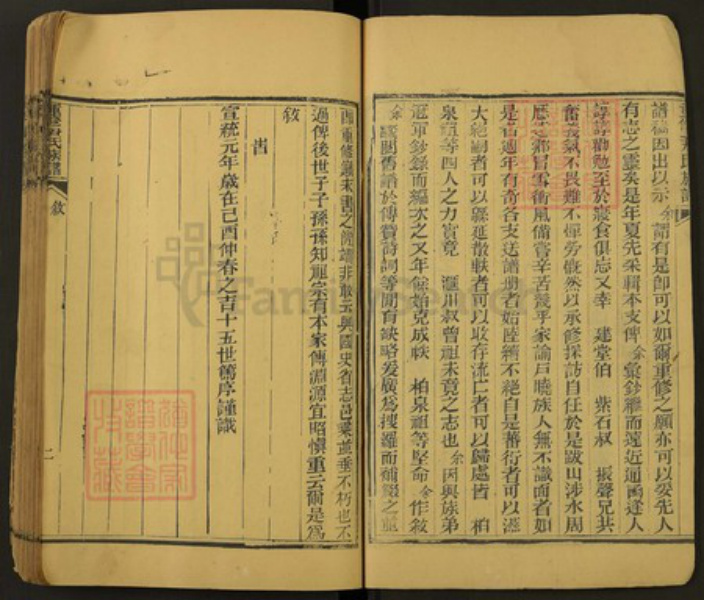 譜稿因出以示余謂有是即可以如爾重修之願亦可以妥先人
有志之靈矣是年夏先采輯本支俾余彙鈔繼而遠近通函逢人
諄諄勸勉至於寢食俱忘又幸 建堂伯 紫石叔 振聲兄共
奮義氣不畏難不憚勞慨然以承修採訪自任於是跋山涉水周
歷之鄉冒雪衝風備嘗辛苦競乎家諭戶曉族人無不識面者如
是者週年有奇各支送譜册者始陸續不絕自是蕃行者可以遞
大絕嗣者可以緜延散軼者可以收存流亡者可以歸處皆 柏
泉詣等四人之力實竟 滙川叔曾祖未竟之志也余因與族弟
冠軍鈔錄而編次之又年餘始克成帙 柏泉祖等堅命余作敘
余竊閱舊譜於傳贊詩詞等間有缺略爰廣為搜羅而補綴之並
重修顛末書之簡端非敢云與國史省志邑乘並垂不朽也不
過俾後世子子孫孫知祖宗有本家傳淵源宜昭慎重云爾是為
敘
宣統元年歲在己酉仲春之吉十五世篤序謹識
氏族譜
敘
二
FamilySearch